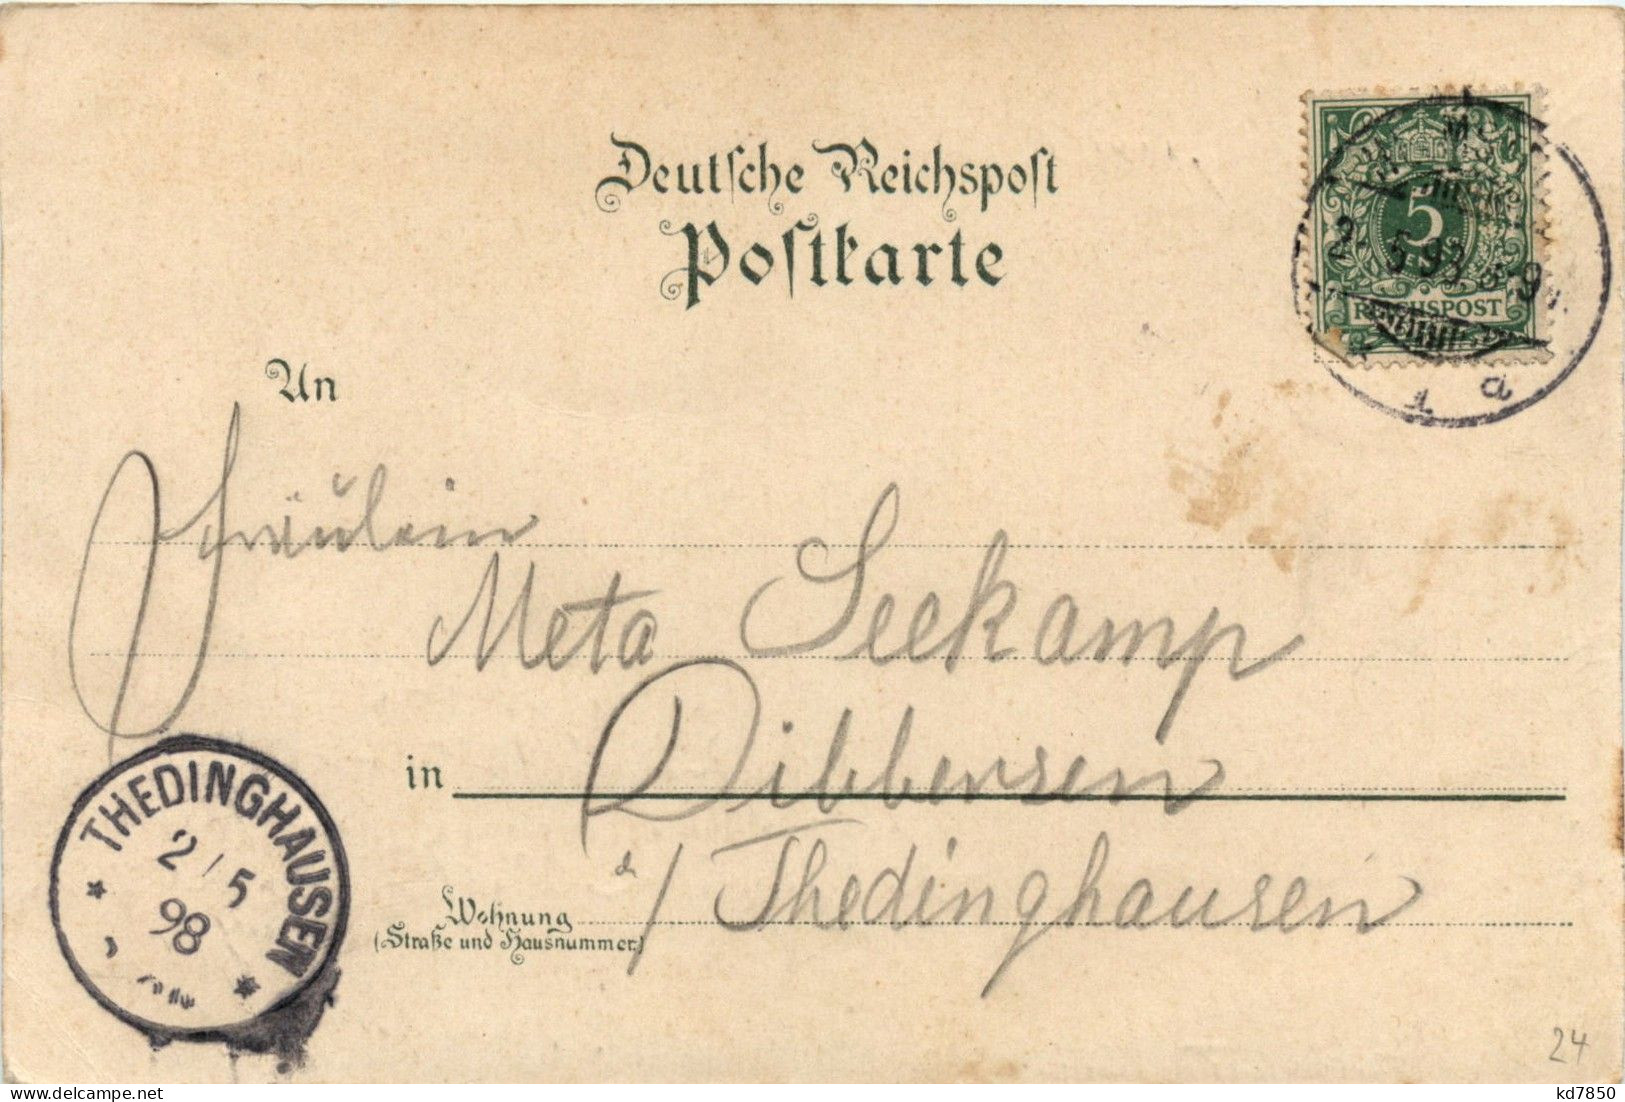 Deutsche Reichspost
Postkarte
5
REICHSPOST
2 5 98 8-9 V.
1 a
An
Fräulein
Meta Seekamp
in Dibbersen
b/ Thedinghausen
Wohnung
(Straße und Hausnummer)
THEDINGHAUSEN
2/5
98
24
kd7850